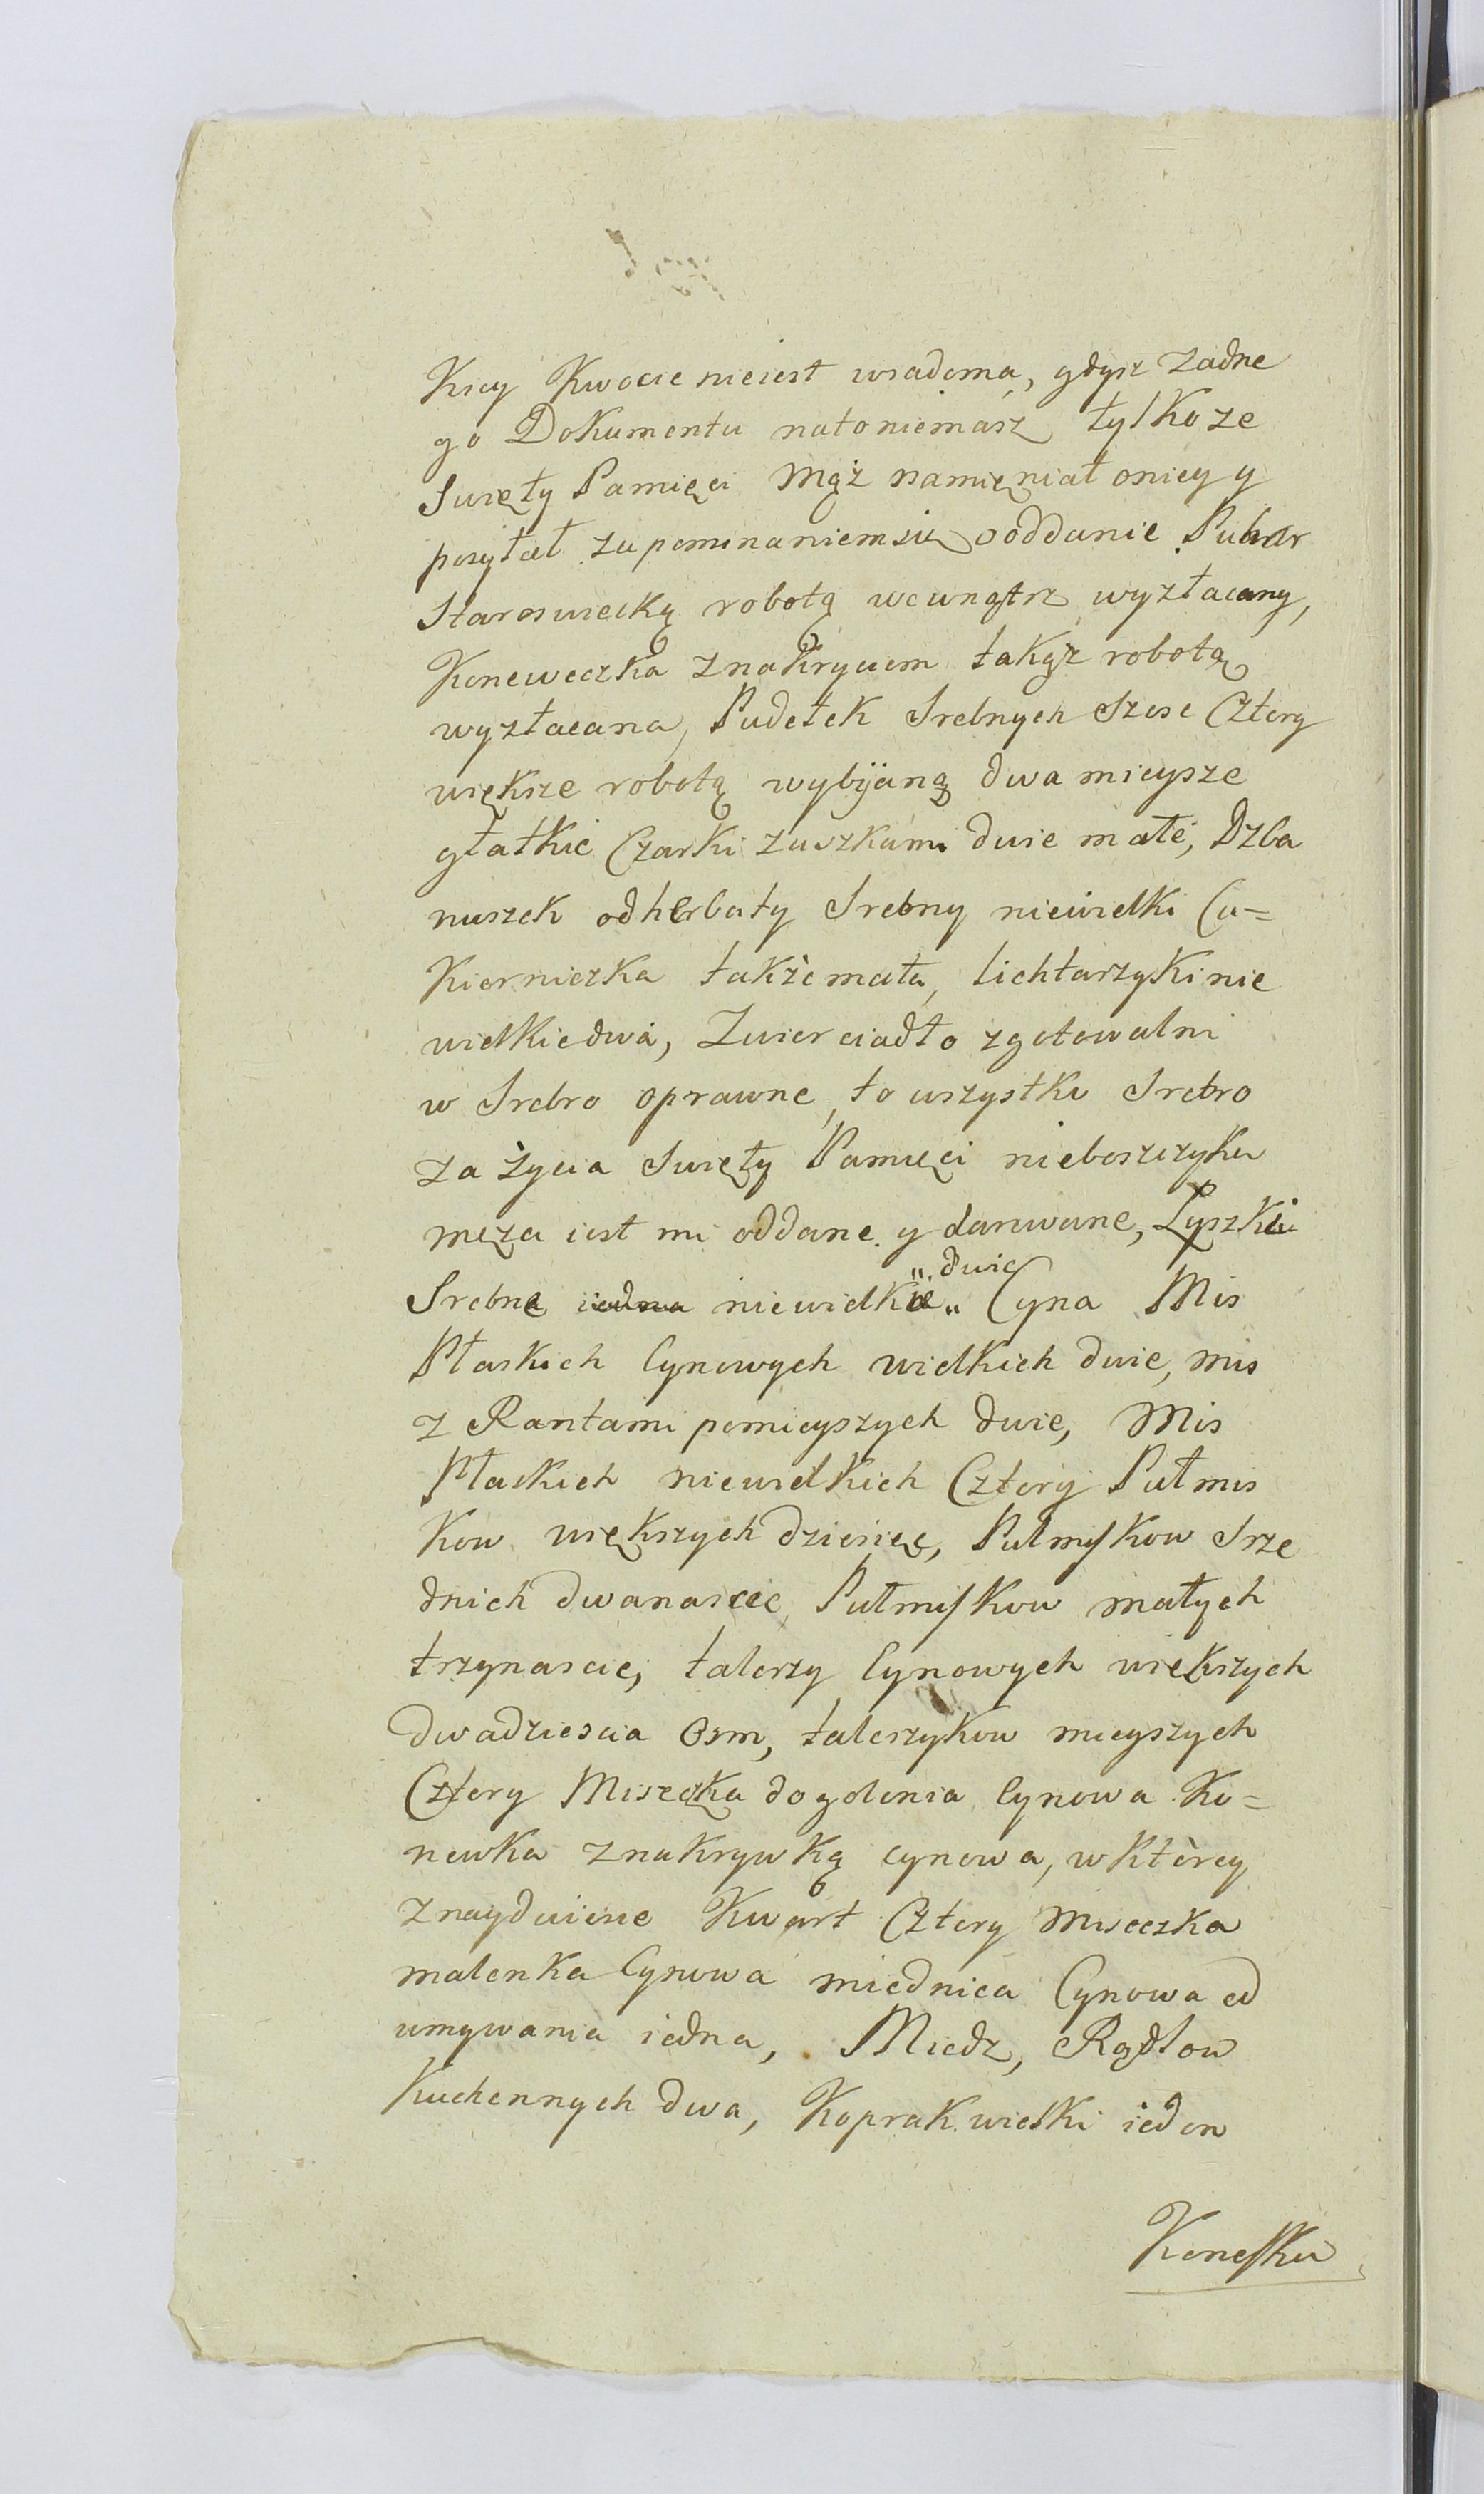 Kiey Kwocie nieiest wiadoma, gdysz zadne
go Dokumentu natoniemasz tylkoze
Swięty Pamięci Mąż namięniał oniey y
posyłał zupominaniemsię ooddanie Puhar
Staroswiecką robotą wewnątrz wyzłacany,
Koneweczka znakryciem takąż robotą
wyzłacana, Pudełek Srebnych Szesc Cztery
większe robotą wybijaną dwa mieysze
głatkie Czarki zuszkami dwie małe, Dzba
nuszek odherbaty Srebny niewielki Cu=
Kierniczka także mała, Lichtarzyki nie
wielkie dwa, Zwierciadło zgotowalni
w Srebro oprawne, to wszystko Srebro
za życia Swięty Pamięci nieboszczyka
męza iest mi oddane y darowane, Łyszki
Srebne iedna niewielkie „ dwie „ Cyna Mis
Płaskich Cynowych wielkich dwie, mis
z Rantami pomieyszych dwie, Mis
Płaskich niewielkich Cztery Pułmis
kow większych dziesięc, Pułmiskow Srze
dnich dwanascie, Pułmiskow małych
trzynascie, talerzy Cynowych większych
dwadziescia Osm, talerzykow mieyszych
Cztery Miseczka do golenia Cynowa Ko=
newka znakrywką cynowa, w którey
znayduiesie Kwart Cztery Miseczka
malenka Cynowa miednica Cynowa od
umywania iedna, Miedz, Rądlow
Kuchennych dwa, Koprak wielki ieden
Koneska